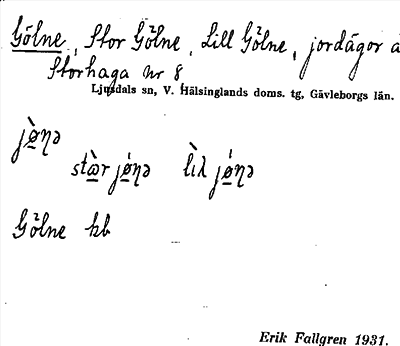 Gölne, Stor Gölne, Lill Gölne, jordägor å
Storhaga nr 8
Ljusdals sn, V. Hälsinglands doms. tg, Gävleborgs län.
jø̀ꞃə
stɷ̀r jǿꞃə lìλ jǿꞃə
Gölne kb
Erik Fallgren 1931.